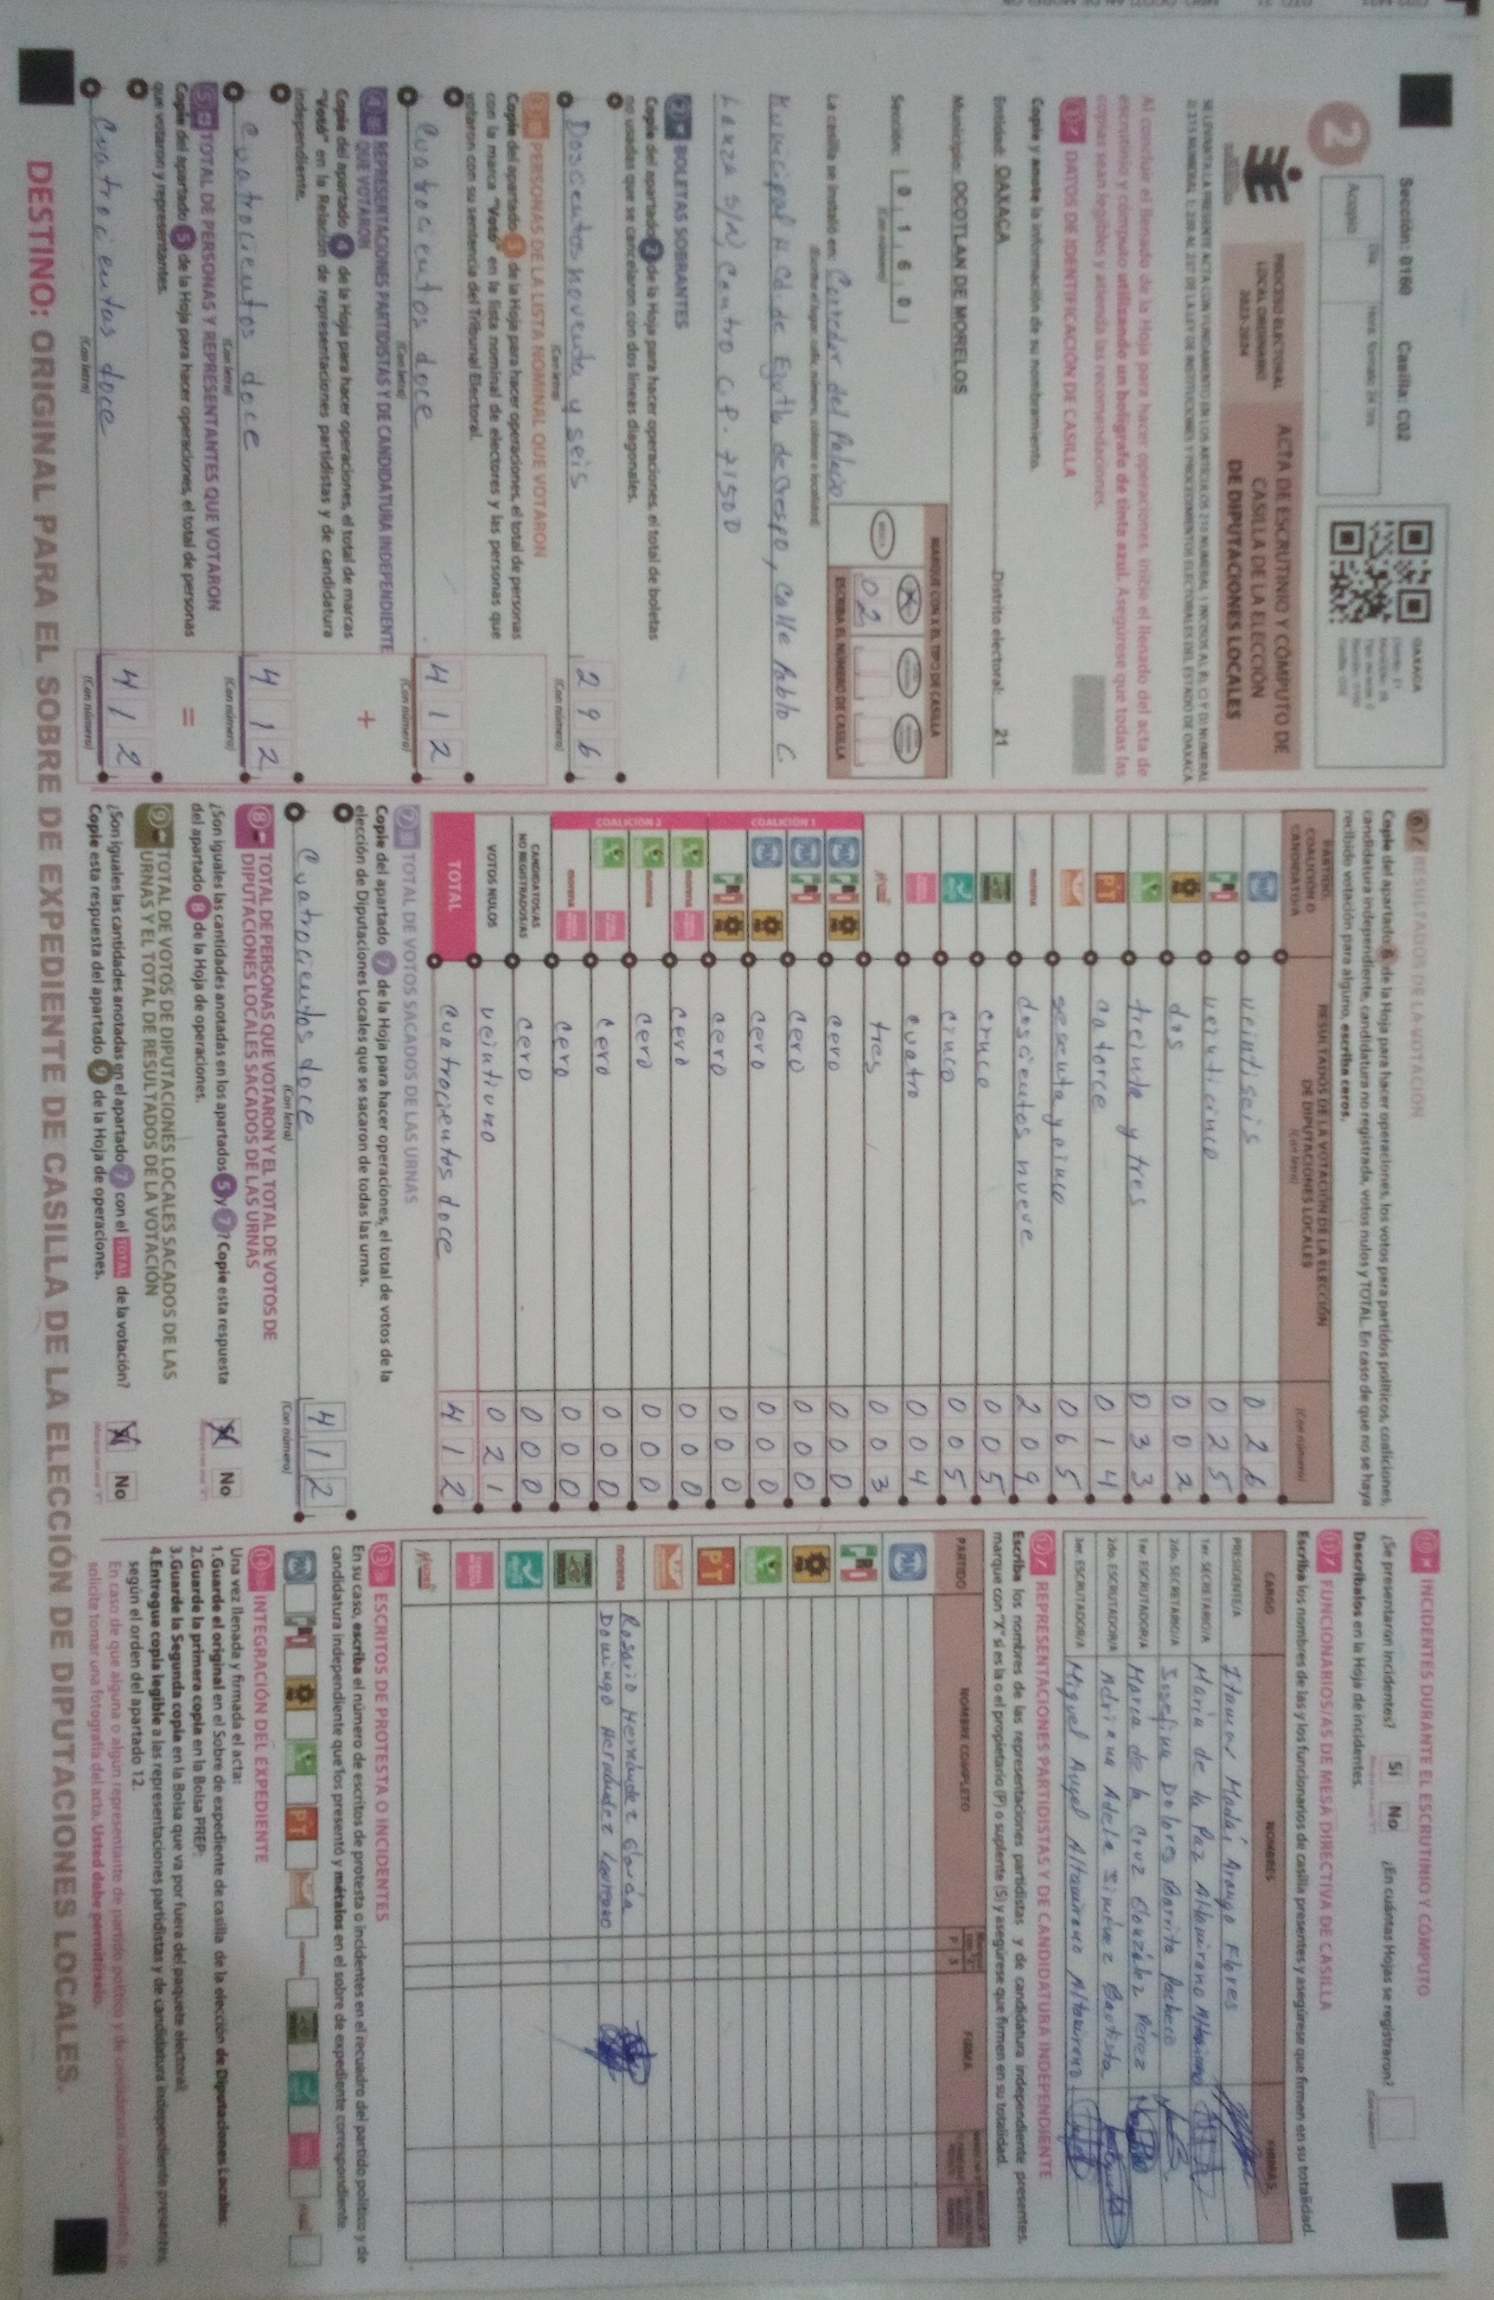 Sección: 0160 Casilla: C02
2
Acopio
Día
Hora: formato 24 hrs
OAXACA
PROCESO ELECTORAL
LOCAL ORDINARIO
2023-2024
ACTA DE ESCRUTINIO Y CÓMPUTO DE
CASILLA DE LA ELECCIÓN
DE DIPUTACIONES LOCALES
Al concluir el llenado de la Hoja para hacer operaciones, inicie el llenado del acta de
escrutinio y cómputo utilizando un bolígrafo de tinta azul. Asegúrese que todas las
copias sean legibles y atienda las recomendaciones.
1 DATOS DE IDENTIFICACIÓN DE CASILLA
Copie y anote la información de su nombramiento.
Entidad: OAXACA Distrito electoral: 21
Municipio: OCOTLAN DE MORELOS
Sección: 0 1 6 0
(Con número)
MARQUE CON X EL TIPO DE CASILLA
ESCRIBA EL NÚMERO DE CASILLA
02
La casilla se instaló en: Corredor del Palacio
(Escriba el lugar: calle, número, colonia o localidad)
Municipal H. Cd. de Ejutla de Crespo, Calle Pablo C.
S/N, Centro C.P. 71500
2 BOLETAS SOBRANTES
Copie del apartado 2 de la Hoja para hacer operaciones, el total de boletas
no usadas que se cancelaron con dos líneas diagonales.
Doscientos noventa y seis 2 9 6
(Con letra) (Con número)
3 PERSONAS DE LA LISTA NOMINAL QUE VOTARON
Copie del apartado 3 de la Hoja para hacer operaciones, el total de personas
con la marca "Votó" en la lista nominal de electores y las personas que
votaron con su sentencia del Tribunal Electoral.
Cuatrocientos doce 4 1 2
(Con letra) (Con número)
4 REPRESENTACIONES PARTIDISTAS Y DE CANDIDATURA INDEPENDIENTE
QUE VOTARON
+
Copie del apartado 4 de la Hoja para hacer operaciones, el total de marcas
"Votó" en la Relación de representaciones partidistas y de candidatura
independiente.
Cuatrocientos doce 4 1 2
(Con letra) (Con número)
5 TOTAL DE PERSONAS Y REPRESENTANTES QUE VOTARON
=
Copie del apartado 5 de la Hoja para hacer operaciones, el total de personas
que votaron y representantes.
Cuatrocientos doce 4 1 2
(Con letra) (Con número)
6 RESULTADOS DE LA VOTACIÓN
Copie del apartado 6 de la Hoja para hacer operaciones, los votos para partidos políticos, coaliciones,
candidatura independiente, candidatura no registrada, votos nulos y TOTAL. En caso de que no se haya
recibido votación para alguno, escriba ceros.
PARTIDO, COALICIÓN O CANDIDATO/A
RESULTADOS DE LA VOTACIÓN DE LA ELECCIÓN
DE DIPUTACIONES LOCALES
(Con letra) (Con número)
PAN veintiseis 0 2 6
PRI veinticinco 0 2 5
dos 0 0 2
treinta y tres 0 3 3
PT catorce 0 1 4
sesenta y cinco 0 6 5
morena doscientos nueve 2 0 9
cinco 0 0 5
cinco 0 0 5
cuatro 0 0 4
tres 0 0 3
COALICIÓN 1
cero 0 0 0
cero 0 0 0
cero 0 0 0
cero 0 0 0
COALICIÓN 2
cero 0 0 0
cero 0 0 0
cero 0 0 0
cero 0 0 0
CANDIDATOS/AS
NO REGISTRADOS/AS cero 0 0 0
VOTOS NULOS veintiuno 0 2 1
TOTAL Cuatrocientos doce 4 1 2
7 TOTAL DE VOTOS SACADOS DE LAS URNAS
Copie del apartado 7 de la Hoja para hacer operaciones, el total de votos de la
elección de Diputaciones Locales que se sacaron de todas las urnas.
Cuatrocientos doce 4 1 2
(Con letra) (Con número)
8 TOTAL DE PERSONAS QUE VOTARON Y EL TOTAL DE VOTOS DE
DIPUTACIONES LOCALES SACADOS DE LAS URNAS
¿Son iguales las cantidades anotadas en los apartados 5 y 7? Copie esta respuesta
del apartado 8 de la Hoja de operaciones.
Sí No
9 TOTAL DE VOTOS DE DIPUTACIONES LOCALES SACADOS DE LAS
URNAS Y EL TOTAL DE RESULTADOS DE LA VOTACIÓN
¿Son iguales las cantidades anotadas en el apartado 7 con el TOTAL de la votación?
Copie esta respuesta del apartado 9 de la Hoja de operaciones.
Sí No
10 INCIDENTES DURANTE EL ESCRUTINIO Y CÓMPUTO
¿Se presentaron incidentes? Sí No ¿En cuántas Hojas se registraron?
Descríbalos en la Hoja de incidentes.
11 FUNCIONARIOS/AS DE MESA DIRECTIVA DE CASILLA
Escriba los nombres de las y los funcionarios de casilla presentes y asegúrese que firmen en su totalidad.
CARGO NOMBRES FIRMAS
PRESIDENTE/A Itamar Madaí Arango Flores
1er. SECRETARIO/A María de la Paz Altamirano Altamirano
2do. SECRETARIO/A Josefina Dolores Barrita Pacheco
1er. ESCRUTADOR/A María de la Cruz González Pérez
2do. ESCRUTADOR/A Adriana Adela Simúnez Bautista
3er. ESCRUTADOR/A Miguel Angel Altamirano Altamirano
12 REPRESENTACIONES PARTIDISTAS Y DE CANDIDATURA INDEPENDIENTE
Escriba los nombres de las representaciones partidistas y de candidatura independiente presentes,
marque con "X" si es la o el propietario (P) o suplente (S) y asegúrese que firmen en su totalidad.
PARTIDO NOMBRE COMPLETO P S FIRMA
PAN
PRI
PT
morena Rosario Hernández
Domingo Hernández
13 ESCRITOS DE PROTESTA O INCIDENTES
En su caso, escriba el número de escritos de protesta o incidentes en el recuadro del partido político y de
candidatura independiente que los presentó y métalos en el sobre de expediente correspondiente.
14 INTEGRACIÓN DEL EXPEDIENTE
Una vez llenada y firmada el acta:
1.Guarde el original en el Sobre de expediente de casilla de la elección de Diputaciones Locales;
2.Guarde la primera copia en la Bolsa PREP;
3.Guarde la Segunda copia en la Bolsa que va por fuera del paquete electoral;
4.Entregue copia legible a las representaciones partidistas y de candidatura independiente presentes,
según el orden del apartado 12.
En caso de que alguna o algún representante de partido político y de candidatura independiente, le
solicite tomar una fotografía del acta, Usted debe permitírselo.
DESTINO: ORIGINAL PARA EL SOBRE DE EXPEDIENTE DE CASILLA DE LA ELECCIÓN DE DIPUTACIONES LOCALES.